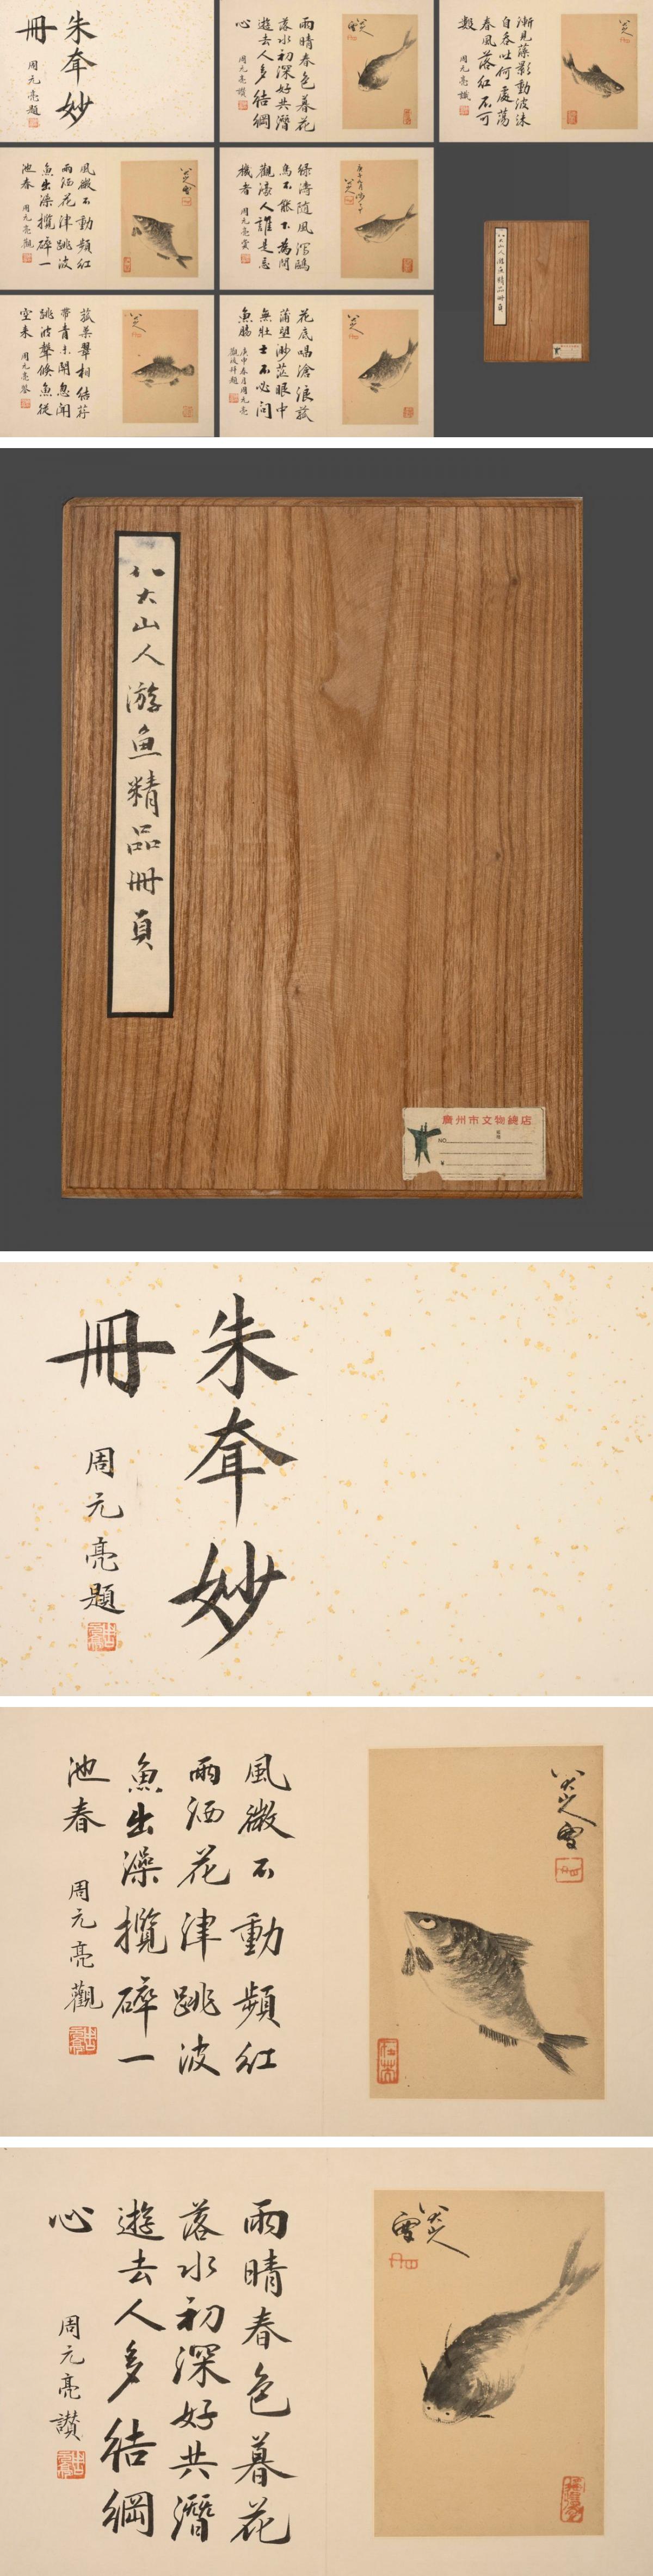 朱耷妙
冊
周元亮題
雨晴春色暮花
落水初深好共潛
遊去人多結綱
心
周元亮讃
八大山人
漸見藻影動波沫
自吞吐何處蕩
春風落紅不可
數
周元亮識
八大山人
風微不動頻紅
雨洒花津跳波
魚出澡攬碎一
池春
周元亮觀
八大山人
綠濤隨風瀉鷗
鳥不能下為問
觀濠人誰是忘
機者
八大山人
菰菜翠相結荇
帶青未開忽聞
跳波聲倏魚從
空來
八大山人
花底唱滄浪菰
蒲望渺茫眼中
無壯士不必問
魚腸
八大山人
八大山人游魚精品冊頁
八大山人游魚精品冊頁
廣州市文物總店
NO
¥
朱耷妙
冊
周元亮題
風微不動頻紅
雨洒花津跳波
魚出澡攬碎一
池春
周元亮觀
八大山人
雨晴春色暮花
落水初深好共潛
遊去人多結綱
心
周元亮讃
八大山人